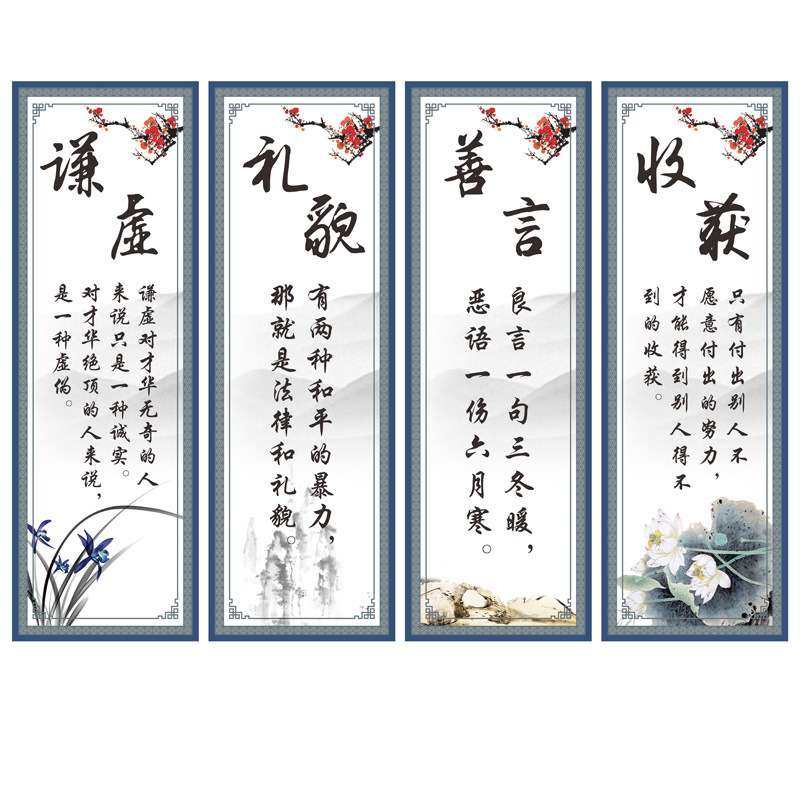 谦虚
谦虚对才华无奇的人
来说只是一种诚实。
对才华绝顶的人来说，
是一种虚伪。
礼貌
有两种和平的暴力，
那就是法律和礼貌。
善言
良言一句三冬暖，
恶语一伤六月寒。
收获
只有付出别人不
愿意付出的努力，
才能得到别人得不
到的收获。